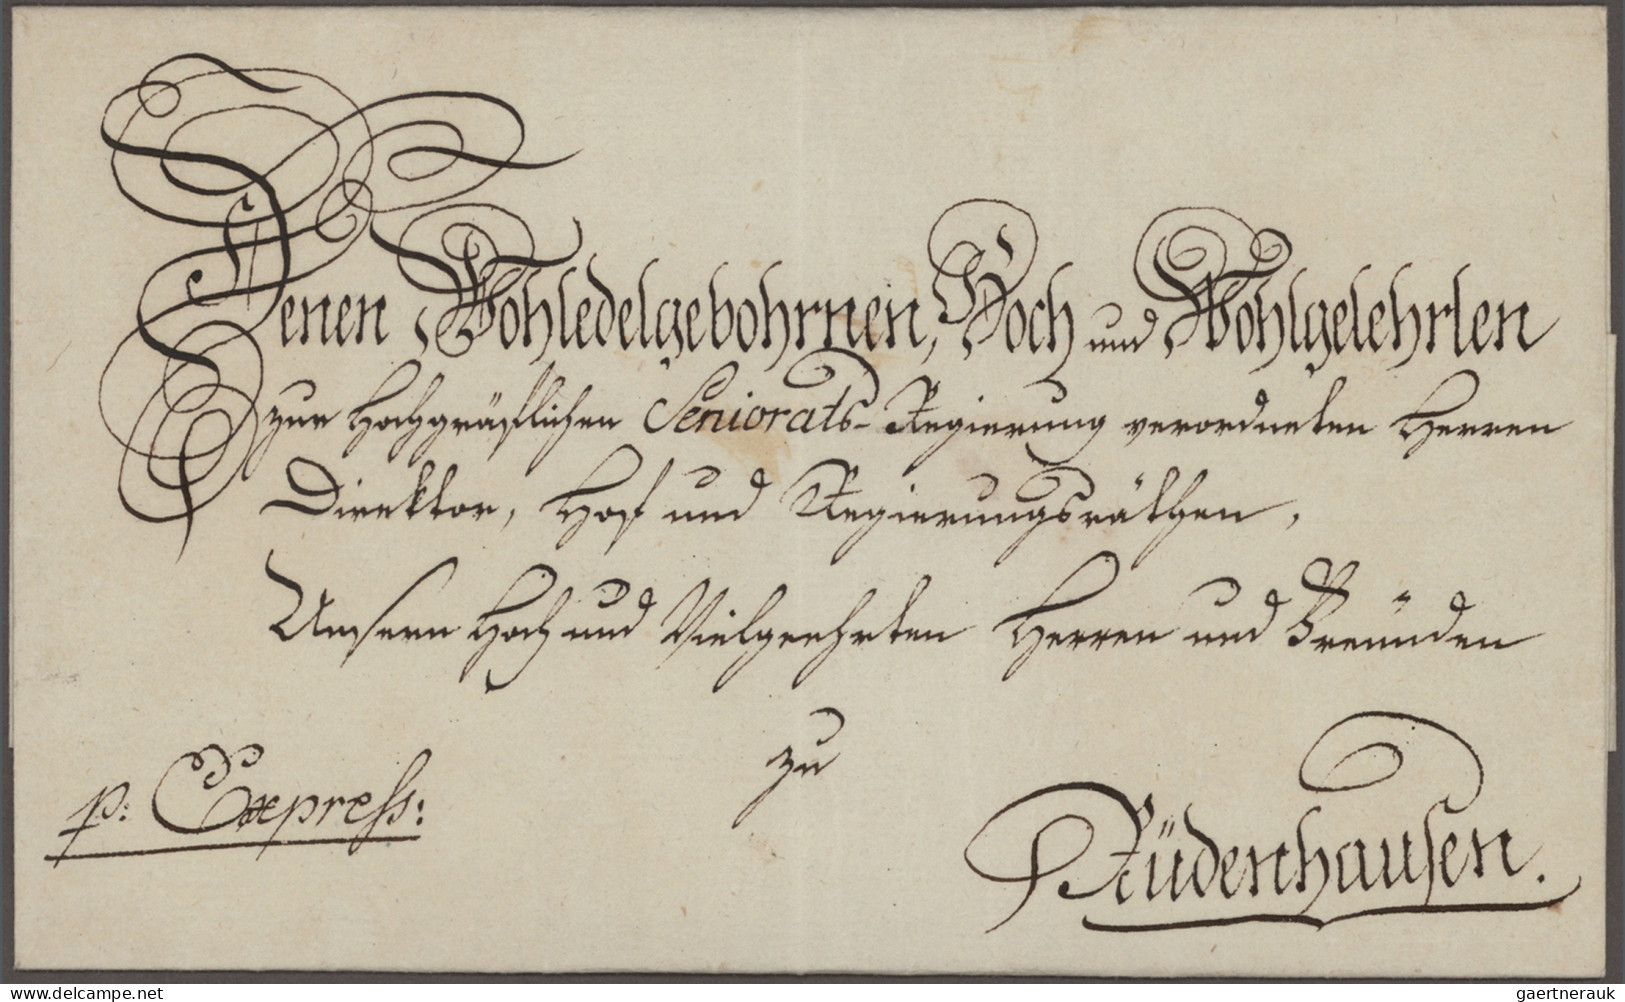 Denen Wohledelgebohrnen, Hoch und Wohlgelehrten
zur Hochgräflichen Seniorats-Regierung verordneten Herren
Direktor, Hof und Regierungsräthen,
Unsern Hoch und Vielgeehrten Herren und Freunden
zu
p: Express:
Rüdenhausen.
www.delcampe.net
gaertnerauk